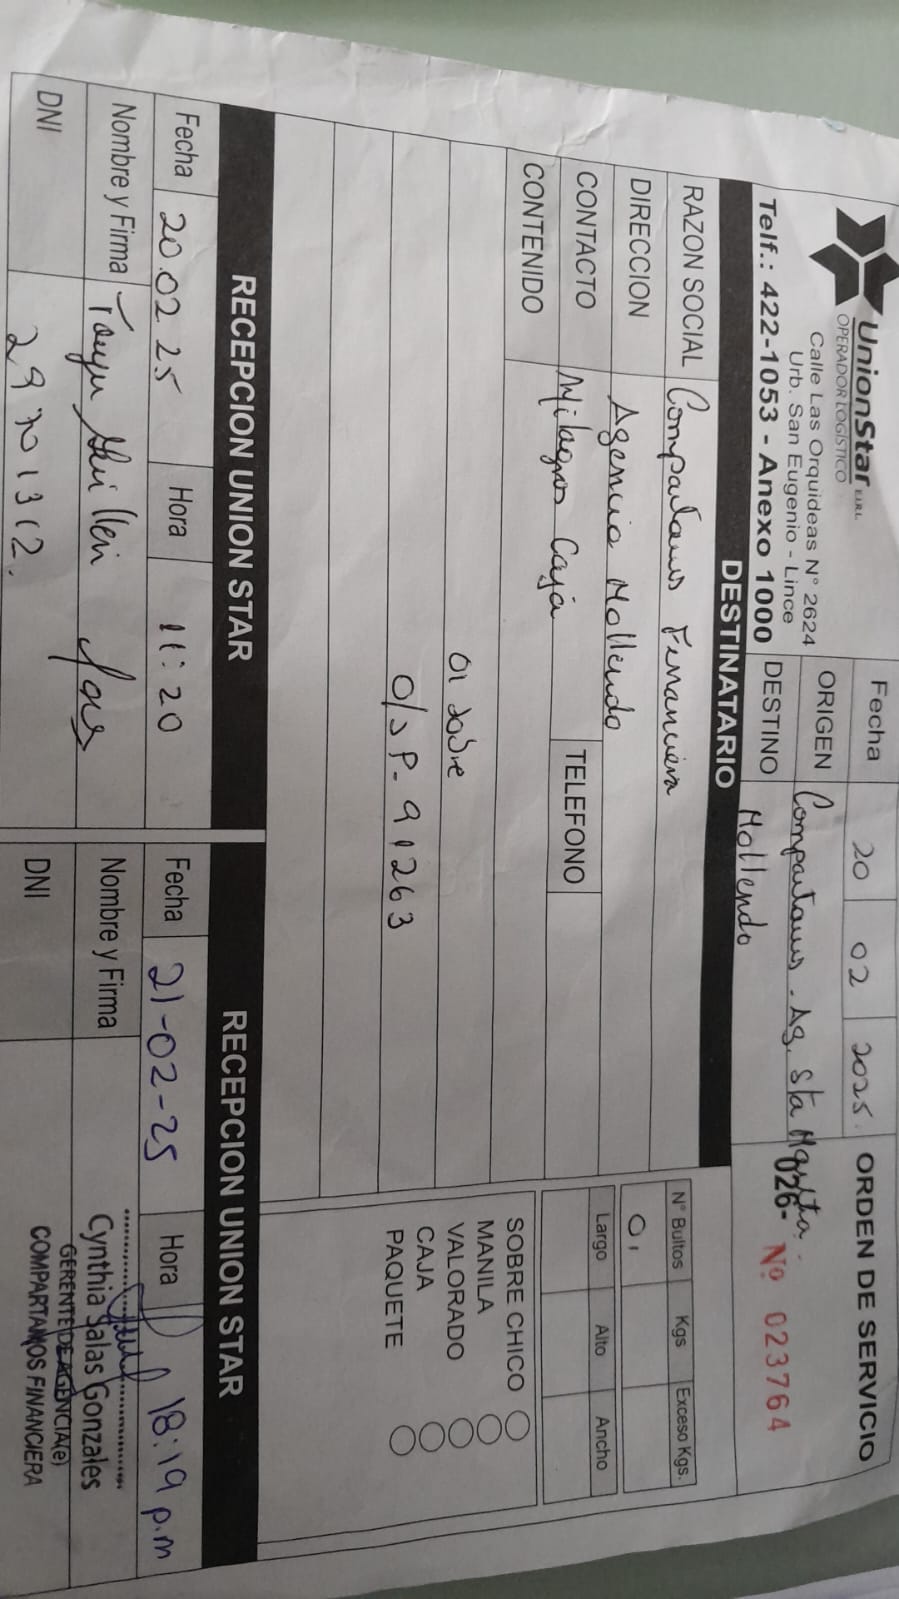 UnionStar E.I.R.L.
OPERADOR LOGISTICO
Calle Las Orquideas N° 2624
Urb. San Eugenio - Lince
Telf.: 422-1053 - Anexo 1000
Fecha 20 02 2025.
ORIGEN Compartamos - Ag. Sta
DESTINO Mollendo
ORDEN DE SERVICIO
026- Nº 023764
DESTINATARIO
RAZON SOCIAL Compartamos Financiera
DIRECCION Agencia Mollendo
CONTACTO Milagros Caja TELEFONO
CONTENIDO
01 sobre
O/SP- 91263
N° Bultos Kgs Exceso Kgs.
01
Largo Alto Ancho
SOBRE CHICO
MANILA
VALORADO
CAJA
PAQUETE
RECEPCION UNION STAR
Fecha 20.02.25 Hora 11:20
Nombre y Firma
DNI 29701312.
RECEPCION UNION STAR
Fecha 21-02-25 Hora 18:19 p.m
Nombre y Firma Cynthia Salas Gonzales
GERENTE DE AGENCIA(e)
COMPARTAMOS FINANCIERA
DNI